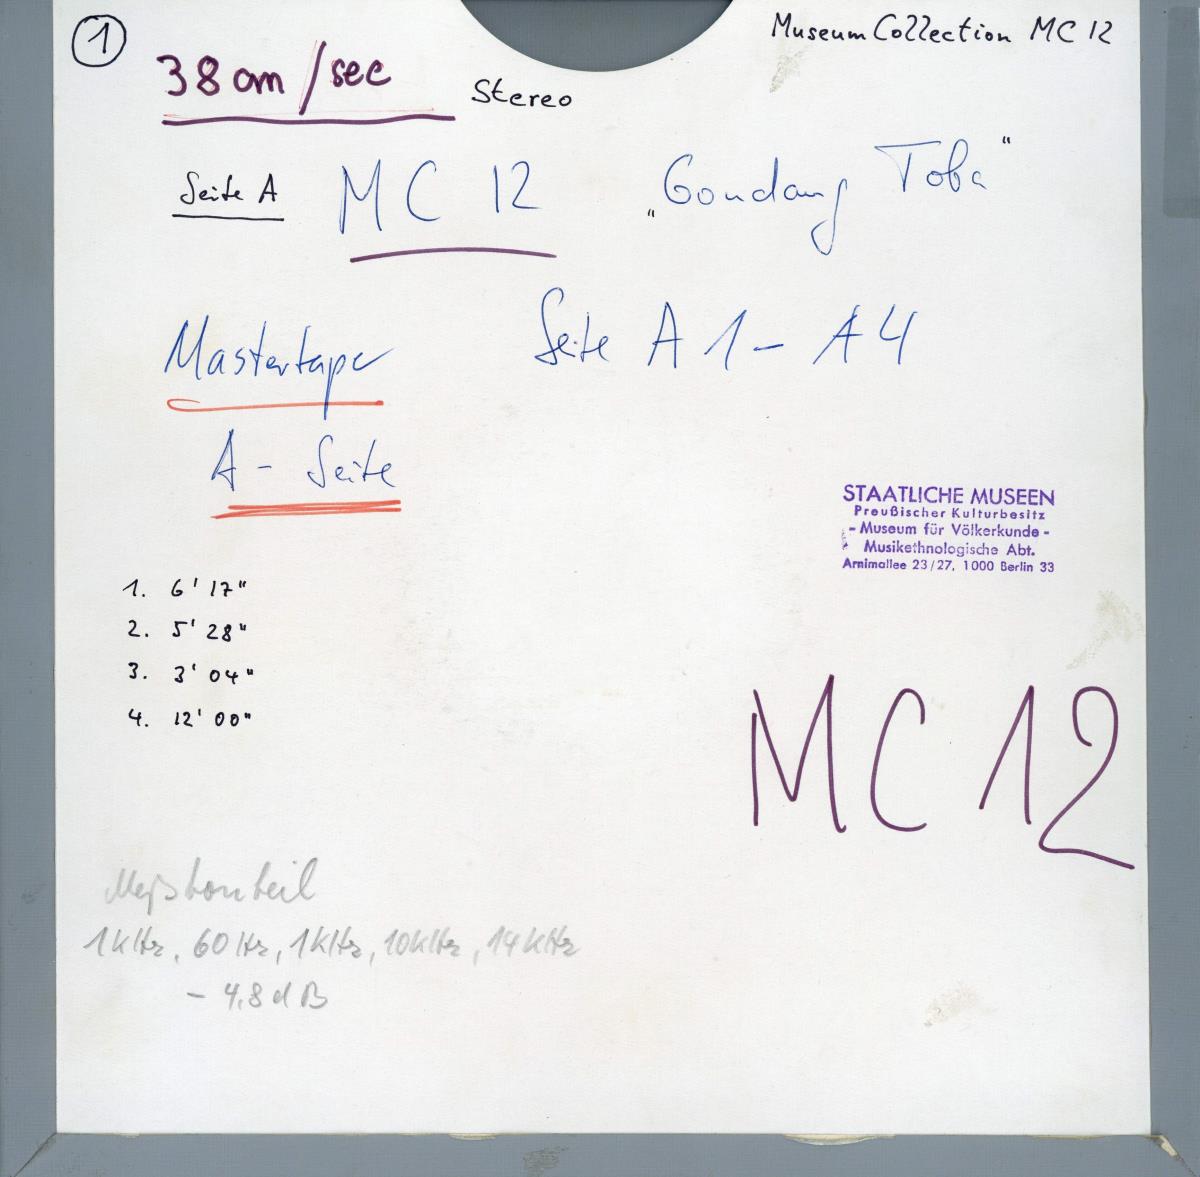 1
Museum Collection MC 12
38 cm/sec
Stereo
Seite A
MC 12
„Gondang Toba“
Mastertape
Seite A1 – A4
A - Seite
STAATLICHE MUSEEN
Preußischer Kulturbesitz
- Museum für Völkerkunde -
Musikethnologische Abt.
Arnimallee 23/27, 1000 Berlin 33
1. 6' 17"
2. 5' 28"
3. 3' 04"
4. 12' 00"
MC 12
Meßtonteil
1 kHz, 60 Hz, 1 kHz, 10 kHz, 14 kHz
- 4,8 dB